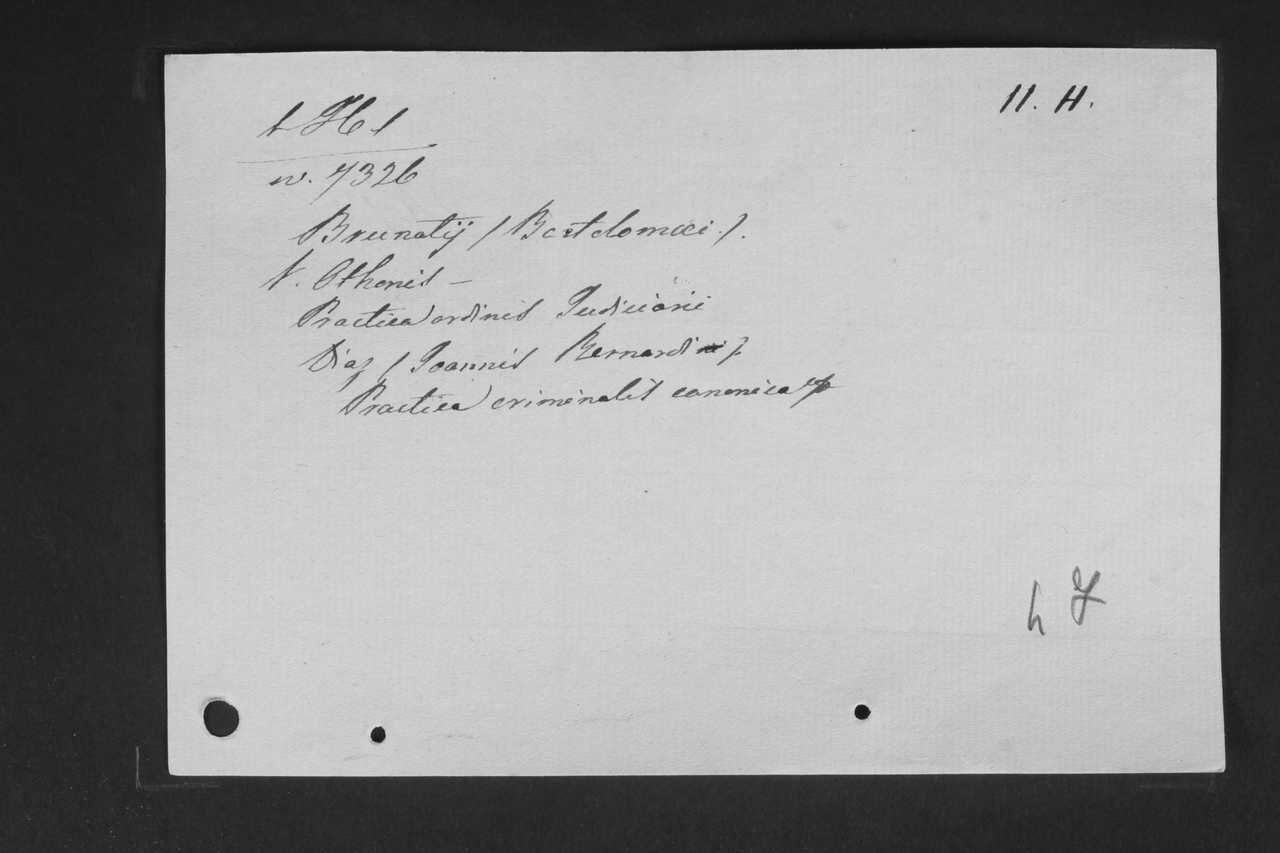 11. H.
w. 7326
Brunatij / Bartolomaei /.
v. Othonis –
Practica ordinis Judiciarii
Diaz / Joannis Bernardi /.
Practica criminalis canonica
h